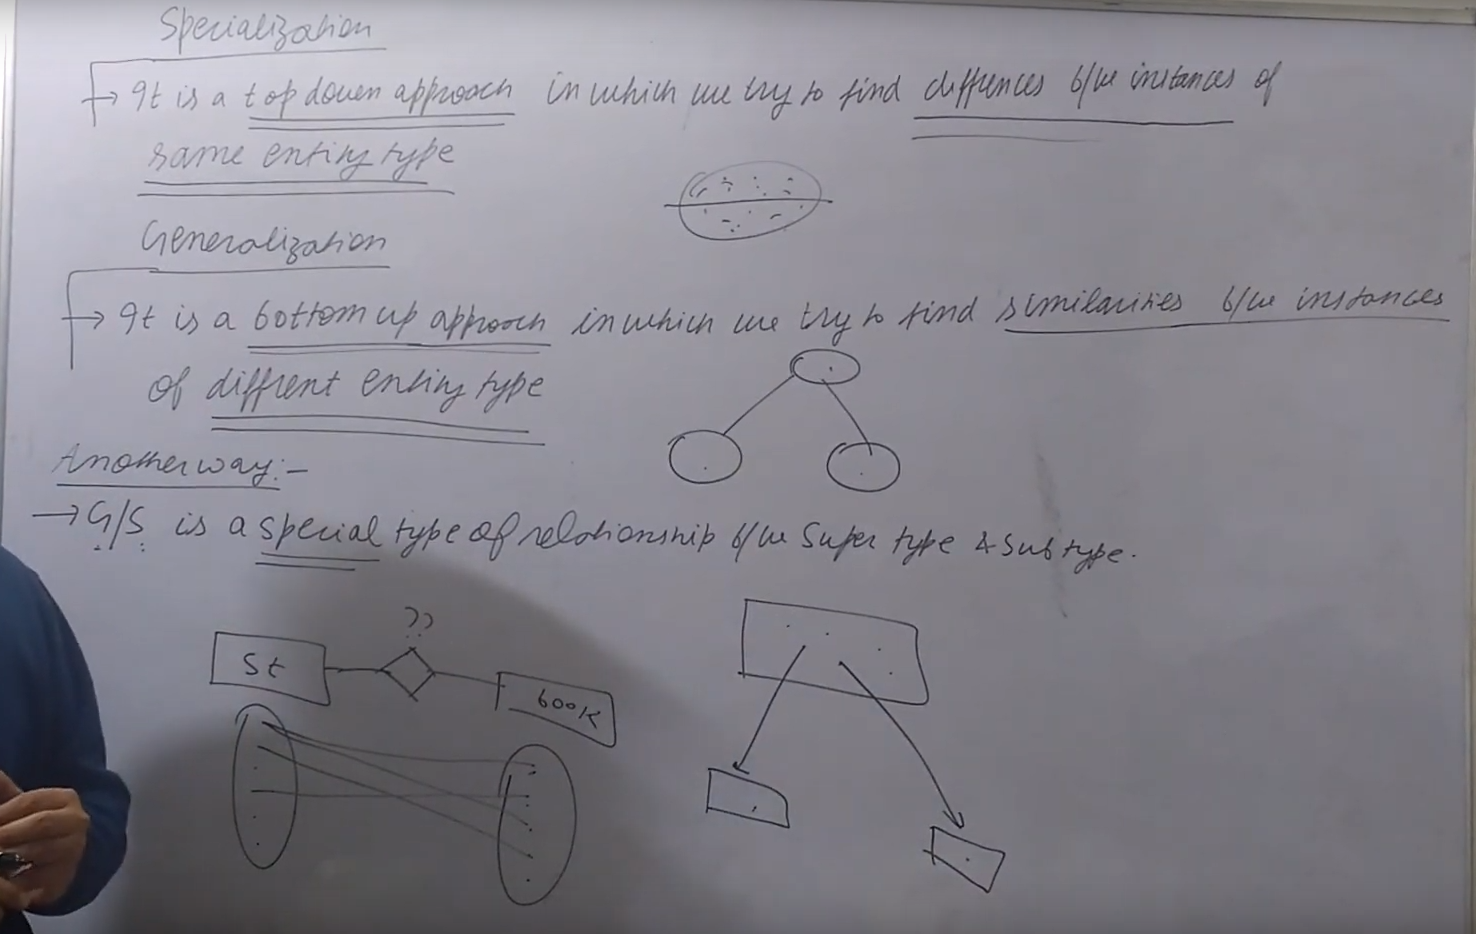 Specialization
→ It is a top down approach in which we try to find diffences b/w instances of
same entity type
Generalization
→ It is a bottom up approch in which we try to find similarities b/w instances
of diffrent entity type
Another way:-
→ G/S is a special type of relationship b/w Super type & Sub type.
??
St
book